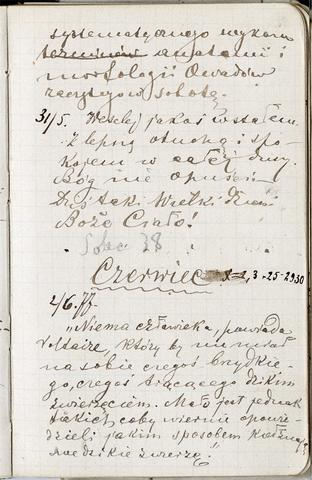 systematycznego wykona
terminów anatomii i
morfologii Owadów
zaczętych w sobotę.
31/5. Weselej jakoś wstałem
z lepszą otuchą i spo-
kojem w całej duszy.
Bóg nie opuści.
Dziś taki Wielki dzień
Boże Ciało!
38
Czerwiec 3-25-2930
2/6.
"Niema człowieka, powiada
Voltaire, który by nie miał
na sobie czegoś brzydkie-
go, czegoś trącącego dzikim
zwierzęciem. Mało jest jednak
takich, coby wiernie opowie-
dzieli jakim sposobem
swe dzikie zwierzę"